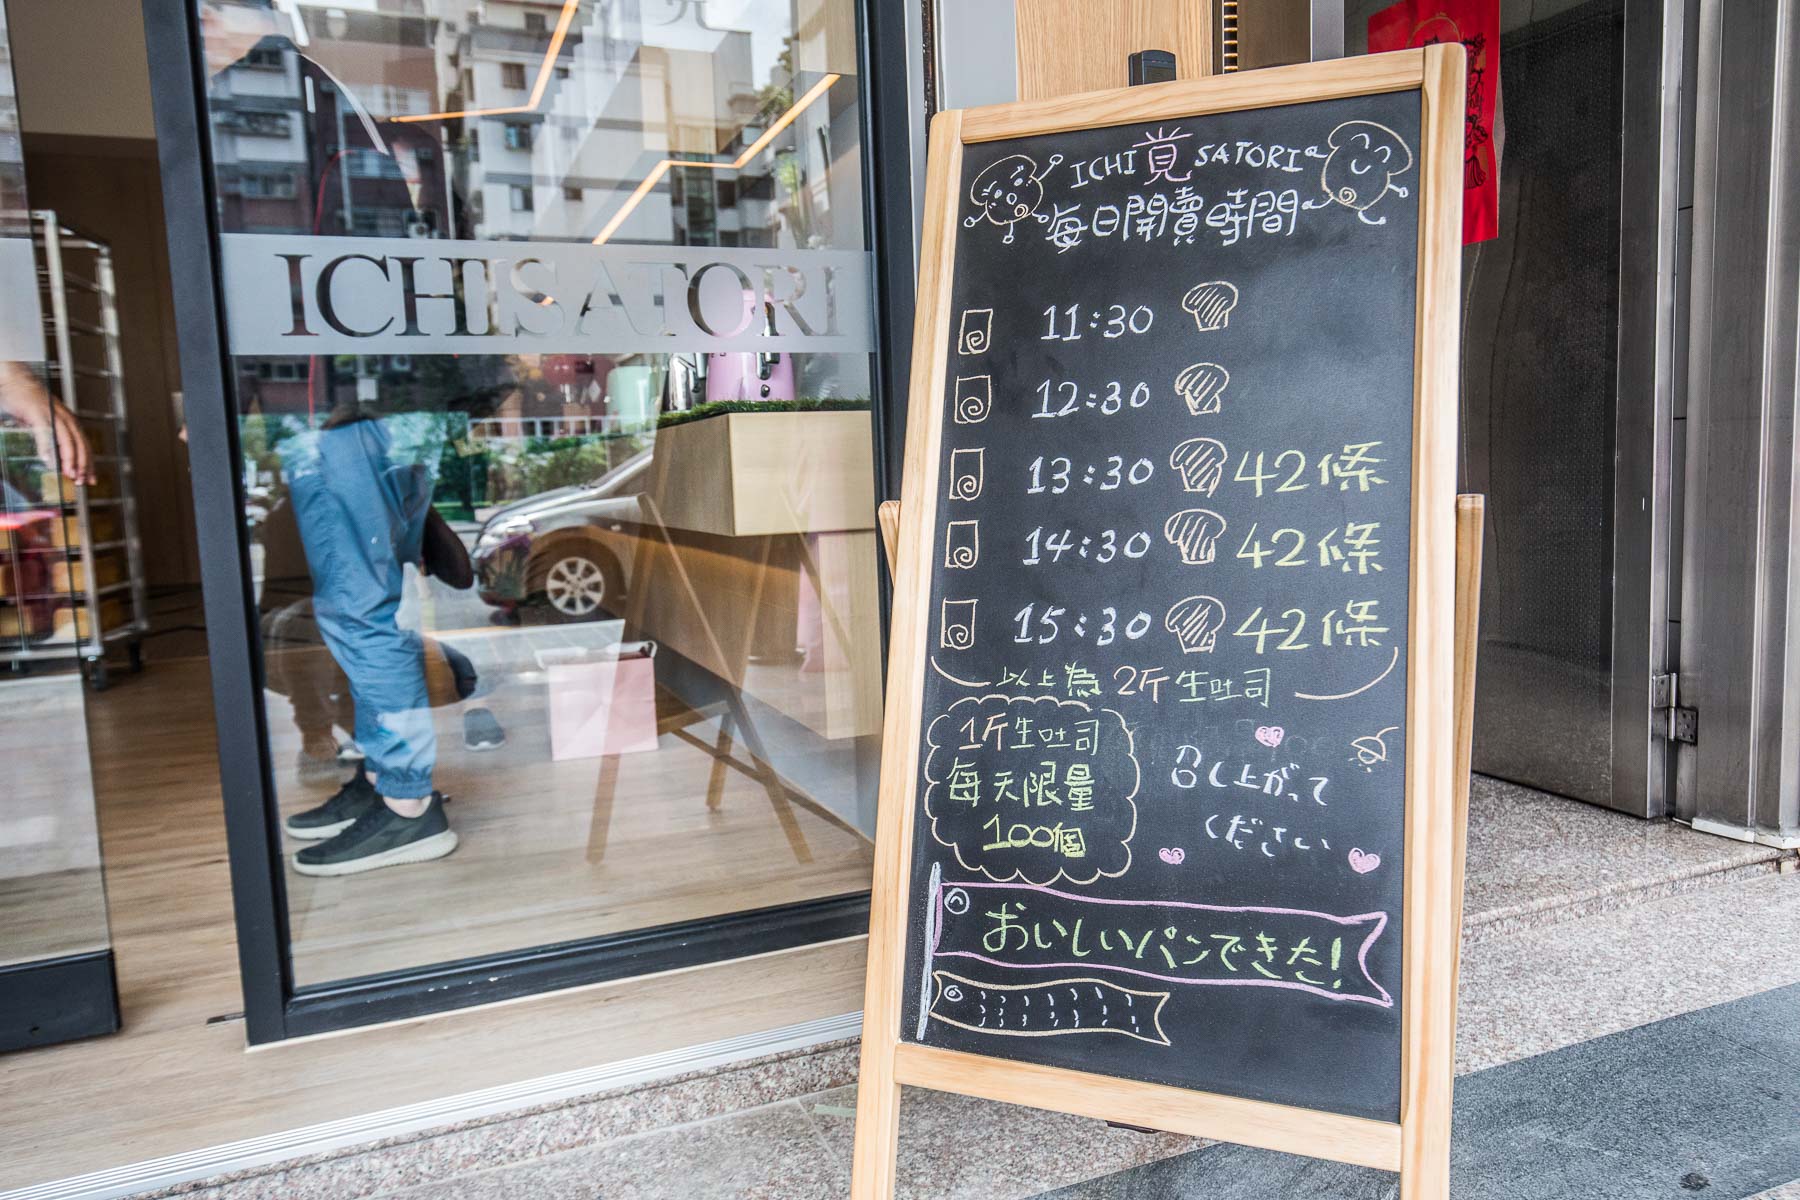 ICHISATORI
ICHI 覚 SATORI
每日開賣時間
11:30
12:30
13:30 42條
14:30 42條
15:30 42條
以上為 2斤 生吐司
1斤生吐司
每天限量
100個
召し上がって
ください
おいしいパンできた!